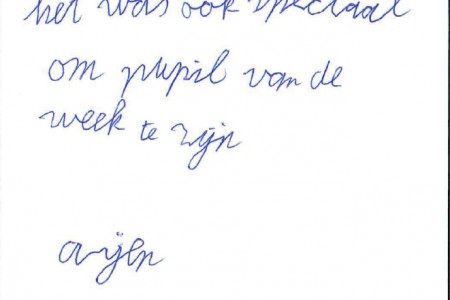 het was ook speciaal
om pupil van de
week te zijn